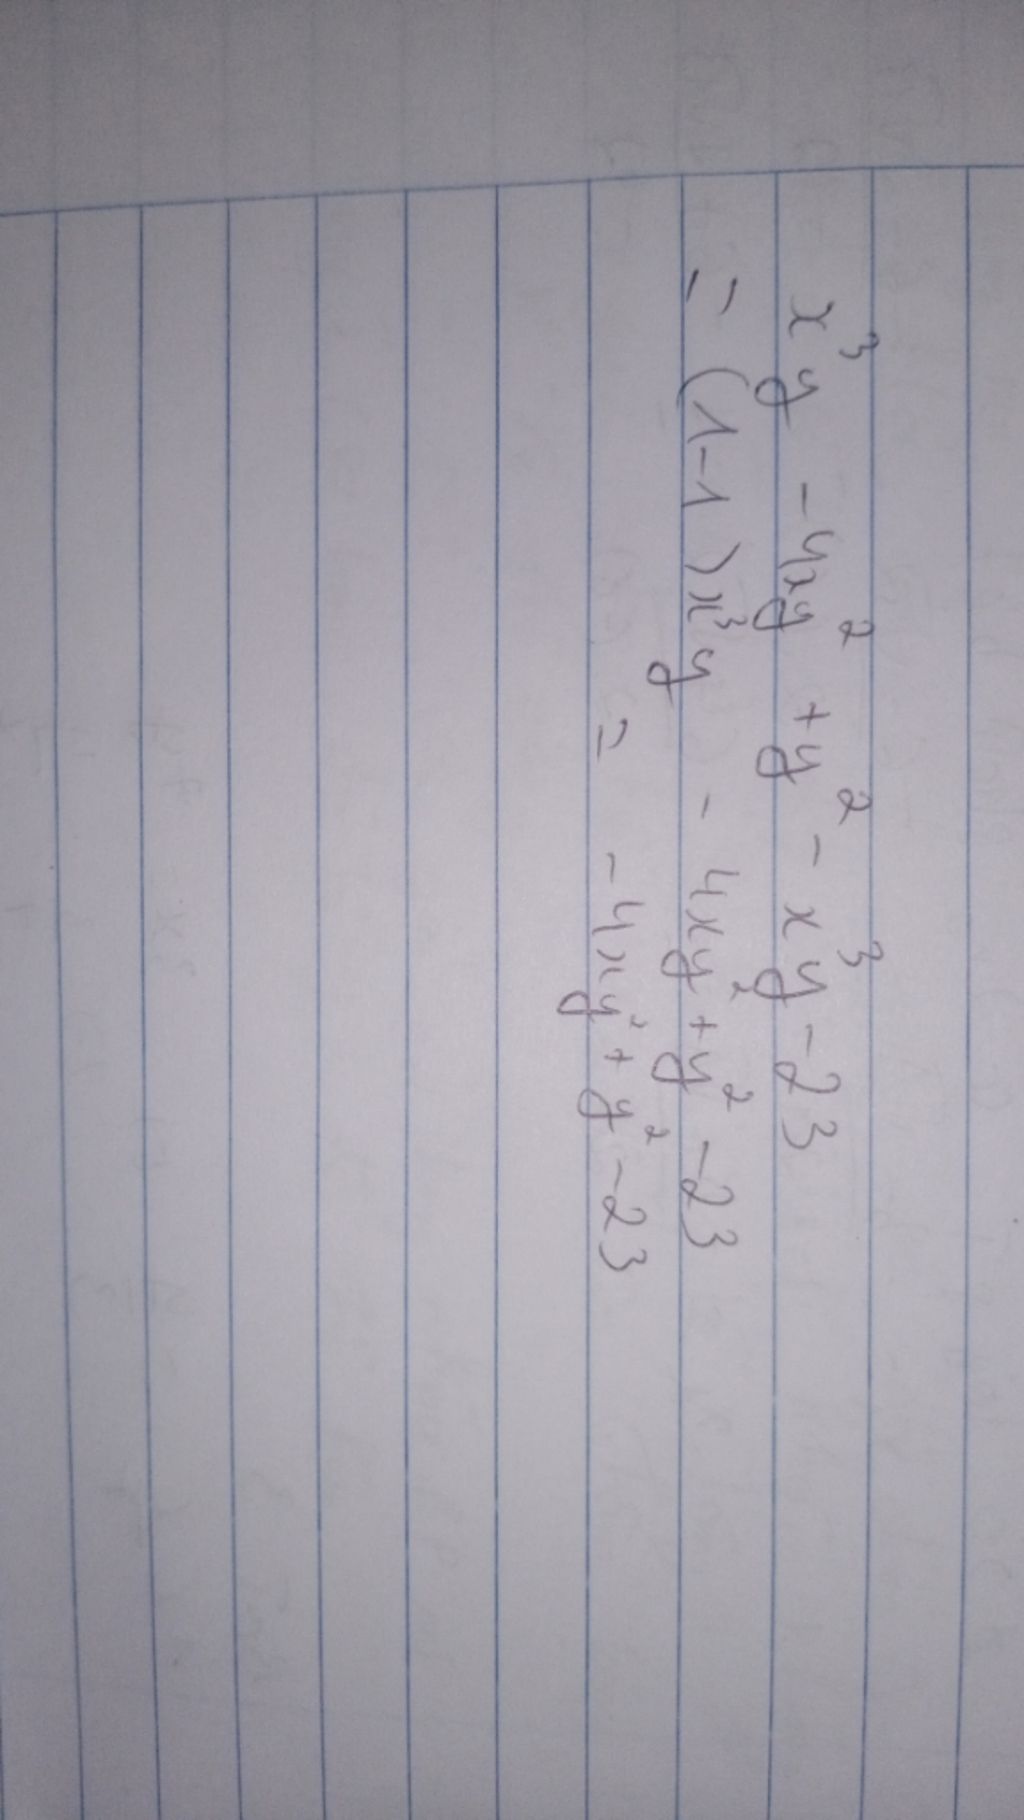 x³y - 4xy² + y² - x³y - 23
= (1-1)x³y - 4xy² + y² - 23
= -4xy² + y² - 23